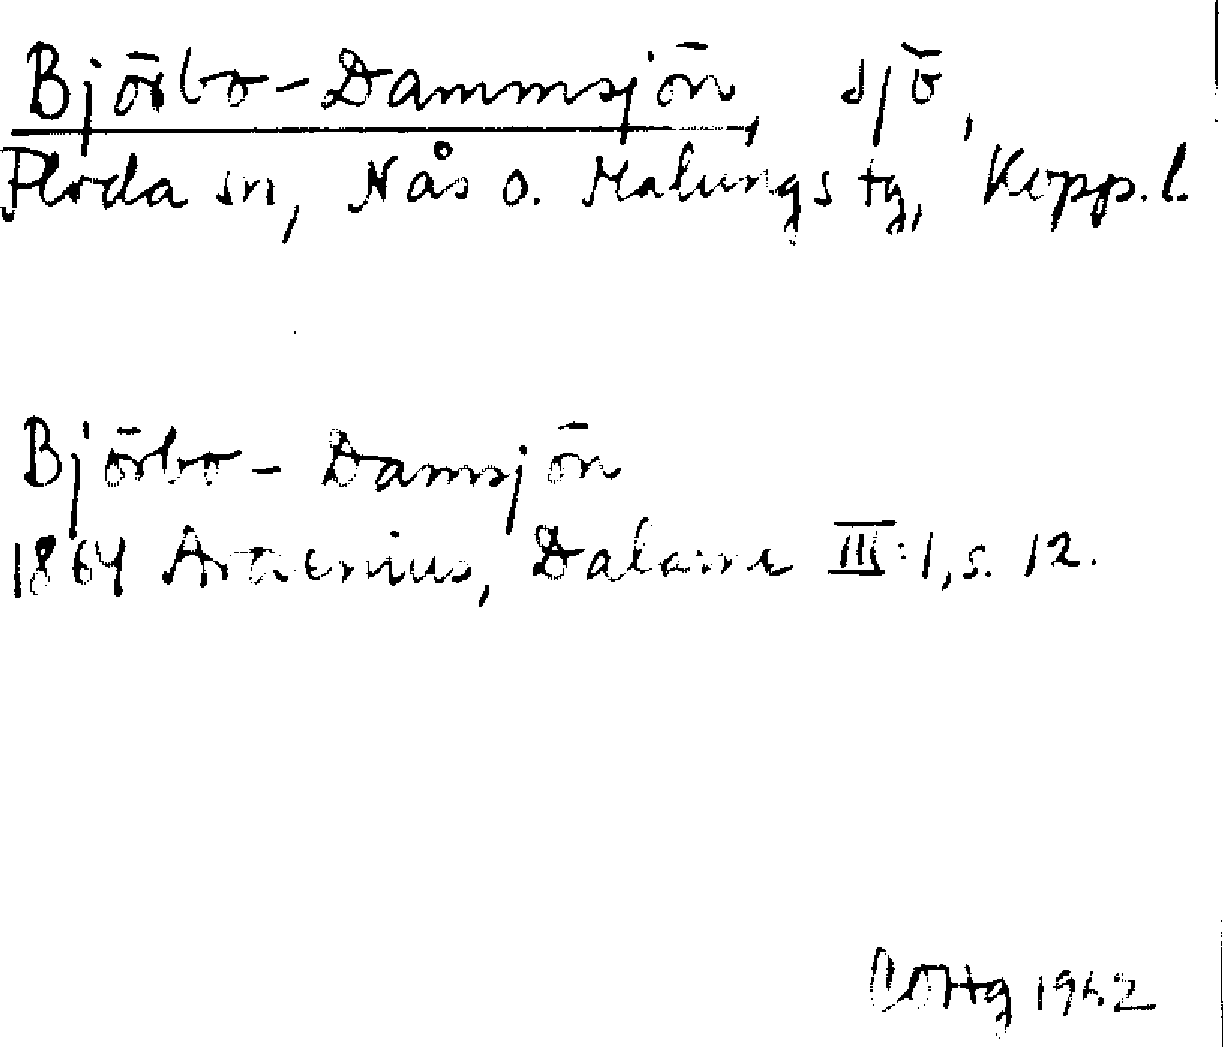 Björbo-Dammsjön, sjö,
Floda sn, Nås o. Malungs tg, Kopp. l.
Björbo-Damsjön
1864 Arosenius, Dalarne III:1, s. 12.
1962